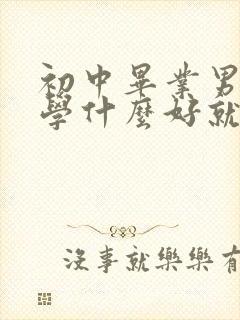 初中畢業男
學什麼好就
沒事就樂樂有